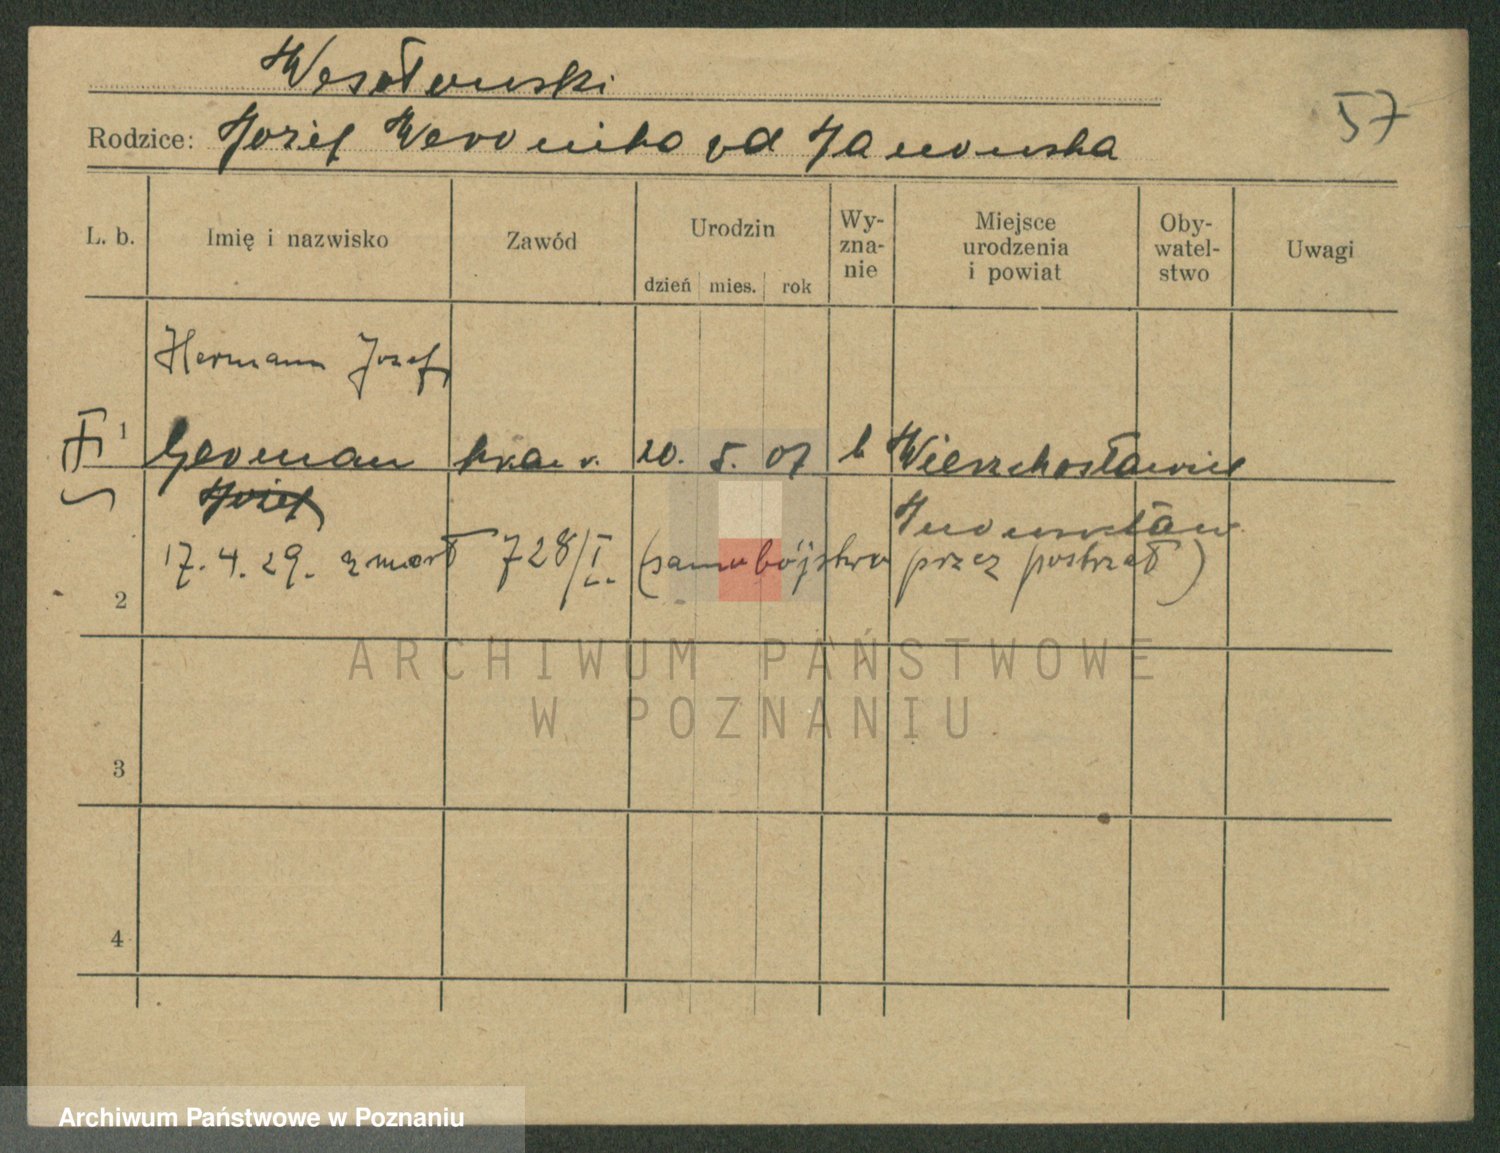 Wesołowski
57
Rodzice: Józef Weronika zd Janowska
L. b. Imię i nazwisko Zawód Urodzin dzień mies. rok Wy-zna-nie Miejsce urodzenia i powiat Oby-watel-stwo Uwagi
Hermann Jozef
1 German 20. 5. 07 k Wierzchosławice
Józef Inowrocław
17. 4. 29. zmarł 728/I. (samobójstwo przez postrzał)
2
3
4
ARCHIWUM PAŃSTWOWE
W POZNANIU
Archiwum Państwowe w Poznaniu